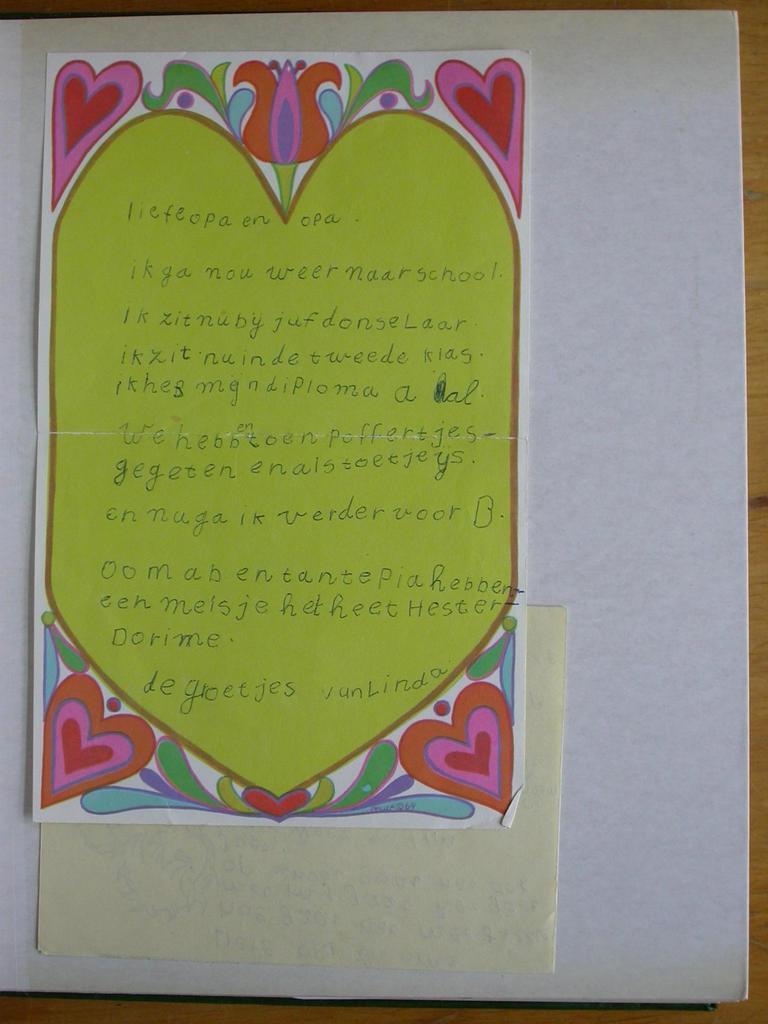 liefe opa en opa.
ik ga nou weer naar school.
Ik zit nu bij juf donselaar.
ik zit nu in de tweede klas.
ik heb mijn diploma a al.
We hebben toen poffertjes-
gegeten en als toetje ys.
en nu ga ik verder voor B.
Oom ab en tante Pia hebben-
een meisje het heet Hester-
Dorime.
de groetjes van Linda